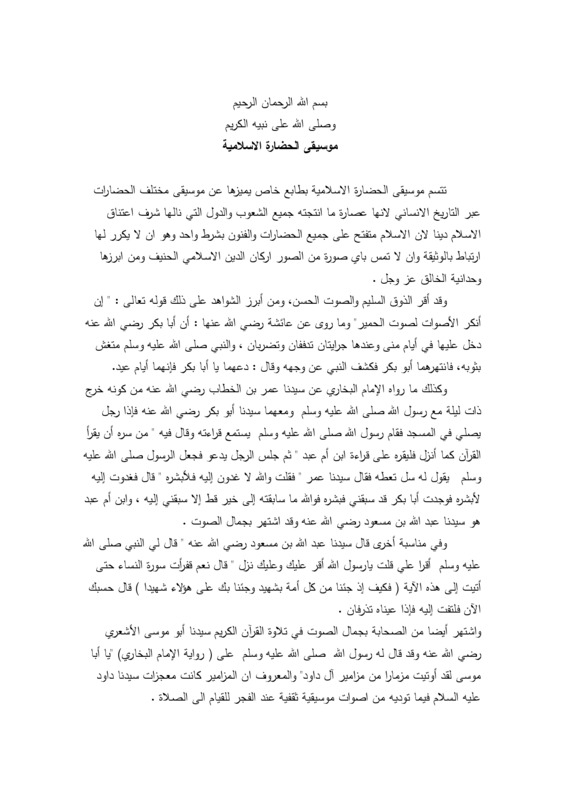 بسم الله الرحمان الرحيم
وصلى الله على نبيه الكريم
موسيقى الحضارة الاسلامية
تتسم موسيقى الحضارة الاسلامية بطابع خاص يميزها عن موسيقى مختلف الحضارات
عبر التاريخ الانساني لانها عصارة ما انتجته جميع الشعوب والدول التي نالها شرف اعتناق
الاسلام دينا لان الاسلام متفتح على جميع الحضارات والفنون بشرط واحد وهو ان لا يكرر لها
ارتباط بالوثيقة وان لا تمس باي صورة من الصور اركان الدين الاسلامي الحنيف ومن ابرزها
وحدانية الخالق عز وجل .
وقد أقر الذوق السليم والصوت الحسن، ومن أبرز الشواهد على ذلك قوله تعالى : " إن
أنكر الأصوات لصوت الحمير" وما روى عن عائشة رضي الله عنها : أن أبا بكر رضي الله عنه
دخل عليها في أيام منى وعندها جرايتان تدففان وتضربان ، والنبي صلى الله عليه وسلم متغش
بثوبه، فانتهرهما أبو بكر فكشف النبي عن وجهه وقال : دعهما يا أبا بكر فإنهما أيام عيد.
وكذلك ما رواه الإمام البخاري عن سيدنا عمر بن الخطاب رضي الله عنه من كونه خرج
ذات ليلة مع رسول الله صلى الله عليه وسلم ومعهما سيدنا أبو بكر رضي الله عنه فإذا رجل
يصلي في المسجد فقام رسول الله صلى الله عليه وسلم يستمع قراءته وقال فيه " من سره أن يقرأ
القرآن كما أنزل فليقره على قراءة ابن أم عبد " ثم جلس الرجل يدعو فجعل الرسول صلى الله عليه
وسلم يقول له سل تعطه فقال سيدنا عمر " فقلت والله لا غدون إليه فلأبشره " قال فغدوت إليه
لأبشره فوجدت أبا بكر قد سبقني فبشره فوالله ما سابقته إلى خير قط إلا سبقني إليه ، وابن أم عبد
هو سيدنا عبد الله بن مسعود رضي الله عنه وقد اشتهر بجمال الصوت .
وفي مناسبة أخرى قال سيدنا عبد الله بن مسعود رضي الله عنه " قال لي النبي صلى الله
عليه وسلم أقرا علي قلت يارسول الله أقر عليك وعليك نزل " قال نعم فقرأت سورة النساء حتى
أتيت إلى هذه الآية ( فكيف إذ جئنا من كل أمة بشهيد وجئنا بك على هؤلاء شهيدا ) قال حسبك
الآن فلتفت إليه فإذا عيناه تذرفان .
واشتهر أيضا من الصحابة بجمال الصوت في تلاوة القرآن الكريم سيدنا أبو موسى الأشعري
رضي الله عنه وقد قال له رسول الله صلى الله عليه وسلم على ( رواية الإمام البخاري) "يا أبا
موسى لقد أوتيت مزمارا من مزامير آل داود" والمعروف ان المزامير كانت معجزات سيدنا داود
عليه السلام فيما توديه من اصوات موسيقية ثقفية عند الفجر للقيام الى الصلاة .